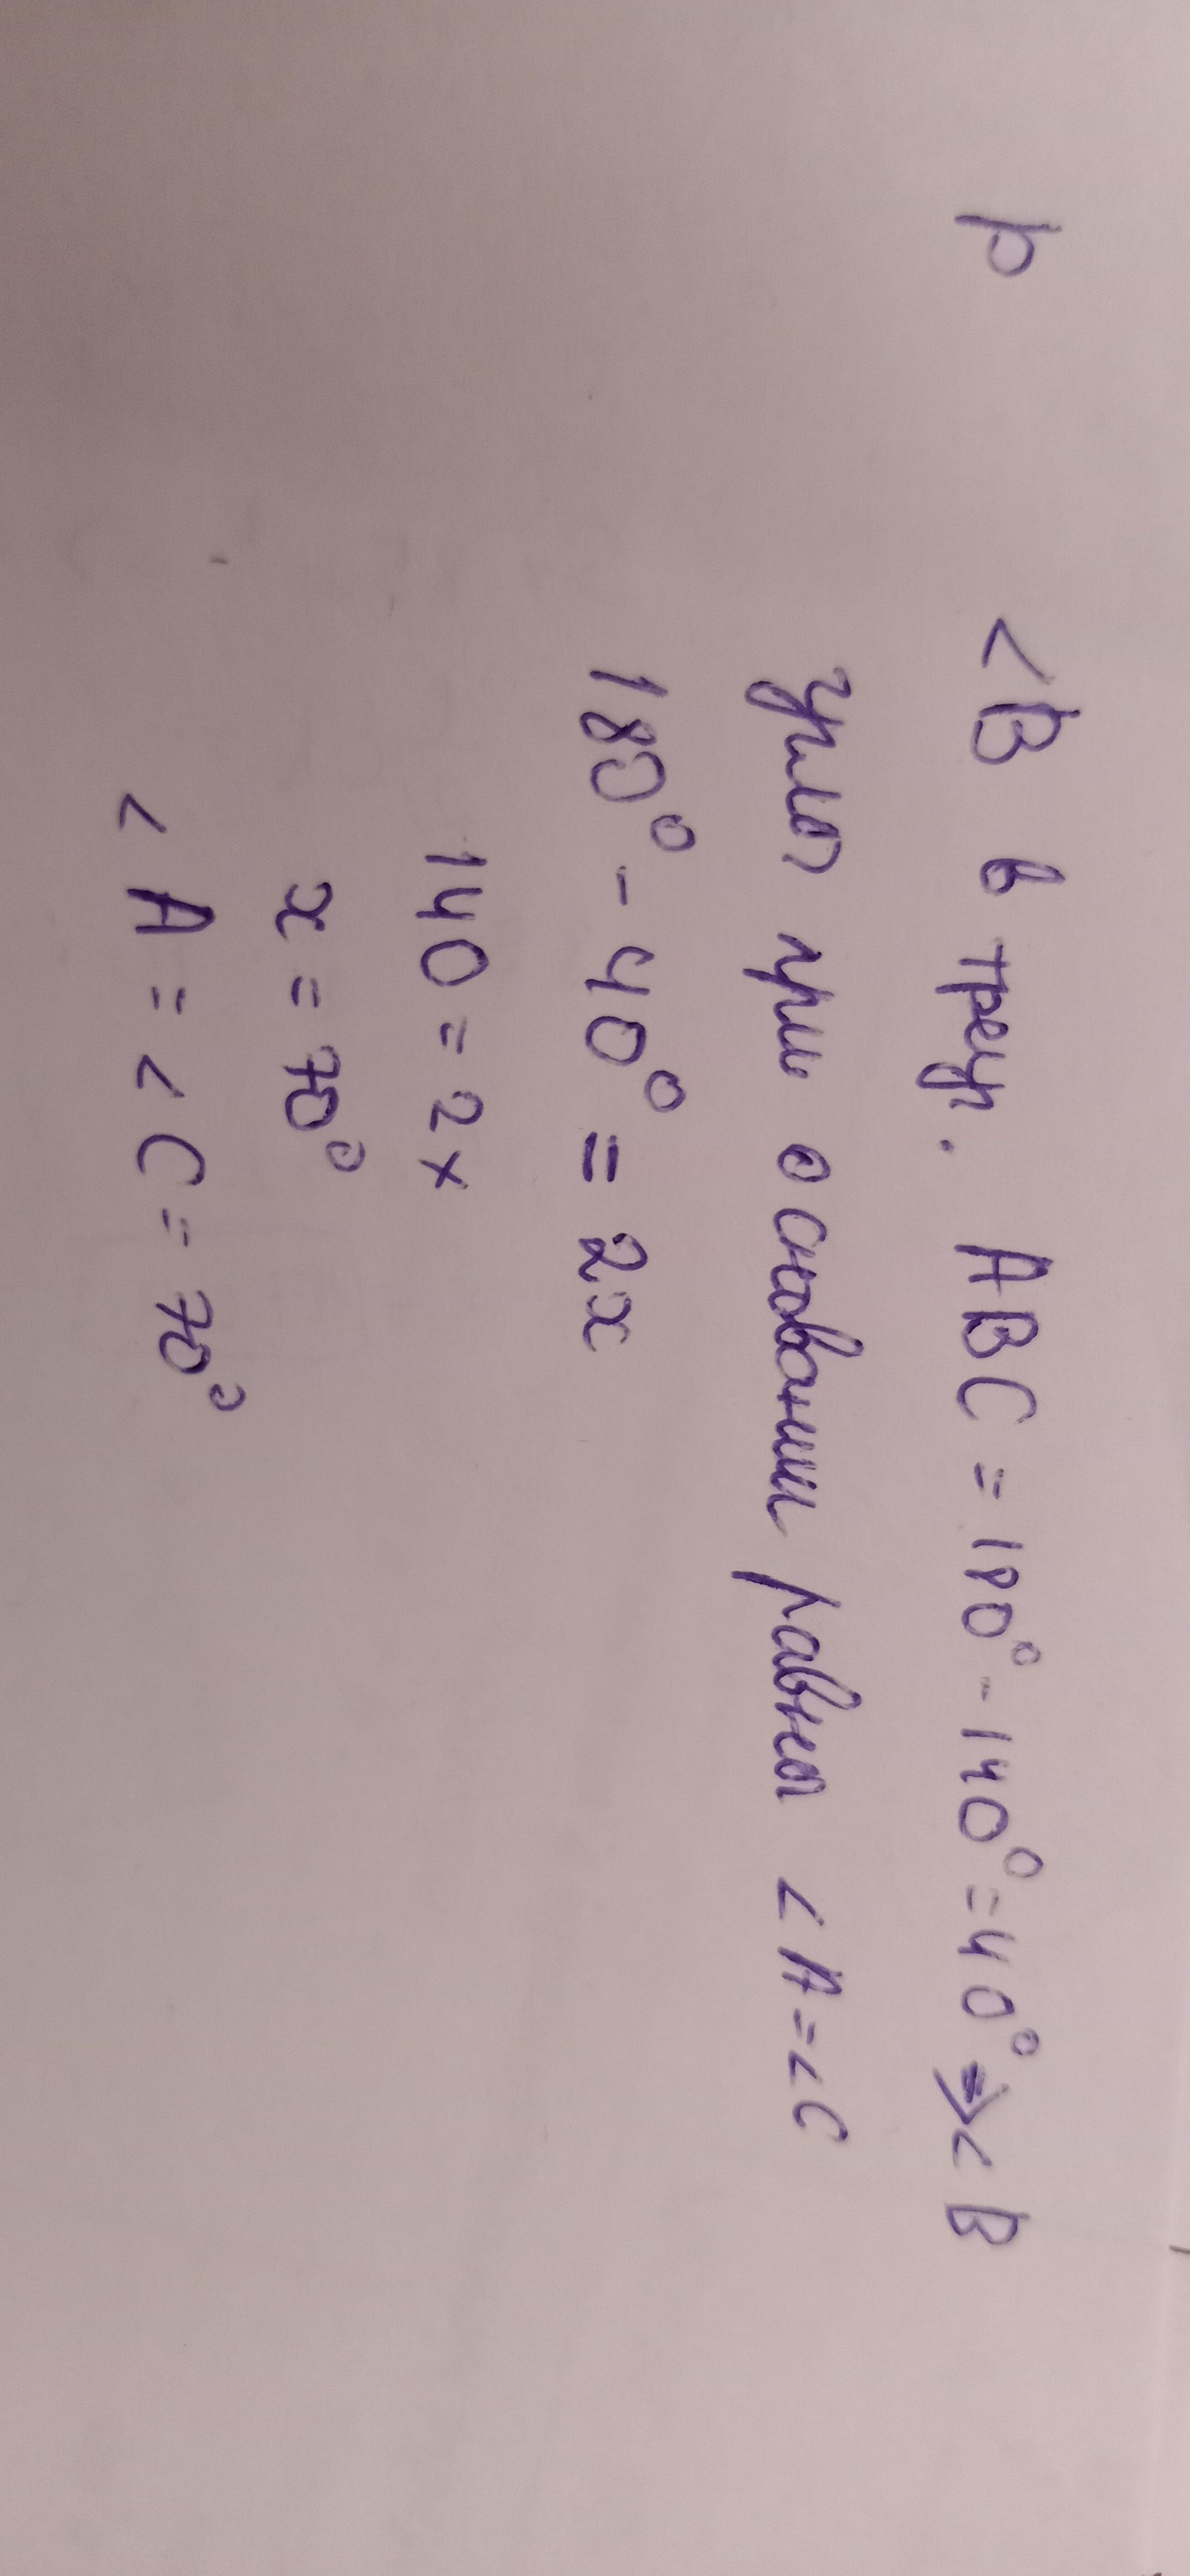 р <B в треуг. ABC = 180° - 140° = 40° => < B
углы при основании равны < A = < C
180° - 40° = 2x
140 = 2x
x = 70°
< A = < C = 70°